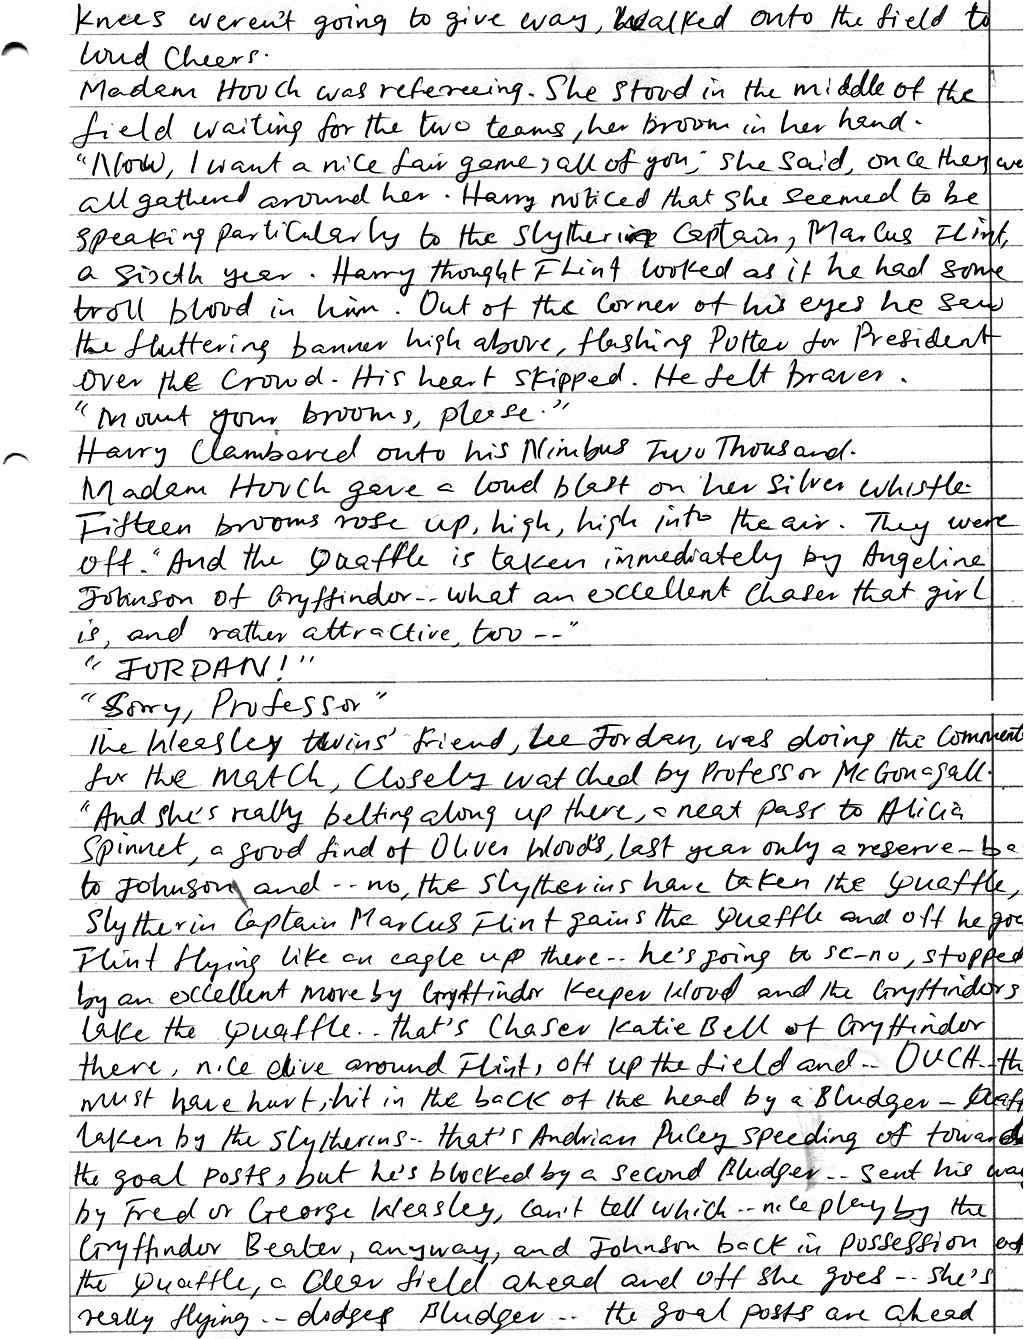 Knees weren't going to give way, walked onto the field to
loud cheers.
Madam Hooch was refereeing. She stood in the middle of the
field waiting for the two teams, her broom in her hand.
"Now, I want a nice fair game, all of you," she said, once they we
all gathered around her. Harry noticed that she seemed to be
speaking particularly to the Slytherin Captain, Marcus Flint,
a sixth year. Harry thought Flint looked as if he had some
troll blood in him. Out of the corner of his eyes he saw
the fluttering banner high above, flashing Potter for President
over the crowd. His heart skipped. He felt braver.
"Mount your brooms, please."
Harry Clambared onto his Nimbus Two Thousand.
Madam Hooch gave a loud blast on her silver whistle.
Fifteen brooms rose up, high, high into the air. They were
off. "And the Quaffle is taken immediately by Angeline
Johnson of Gryffindor -- what an excellent chaser that girl
is, and rather attractive, too --"
"JORDAN!"
"Sorry, Professor"
The Weasley twins' friend, Lee Jordan, was doing the comment
for the match, closely watched by Professor McGonagall.
"And she's really belting along up there, a neat pass to Alicia
Spinnet, a good find of Oliver Wood's, last year only a reserve - ba
to Johnson and -- no, the Slytherins have taken the Quaffle,
Slytherin Captain Marcus Flint gains the Quaffle and off he goe
Flint flying like an eagle up there -- he's going to sc-no, stopped
by an excellent move by Gryffindor Keeper Wood and the Gryffindors
take the Quaffle -- that's Chaser Katie Bell of Gryffindor
there, nice dive around Flint, off up the field and -- OUCH -- th
must have hurt, hit in the back of the head by a Bludger - Quaff
taken by the Slytherins -- that's Andrian Pucey speeding of towards
the goal posts, but he's blocked by a second Bludger -- sent his wa
by Fred or George Weasley, can't tell which -- nice play by the
Gryffindor Beater, anyway, and Johnson back in possession of
the Quaffle, a clear field ahead and off she goes -- she's
really flying -- dodges Bludger -- the goal posts are ahead